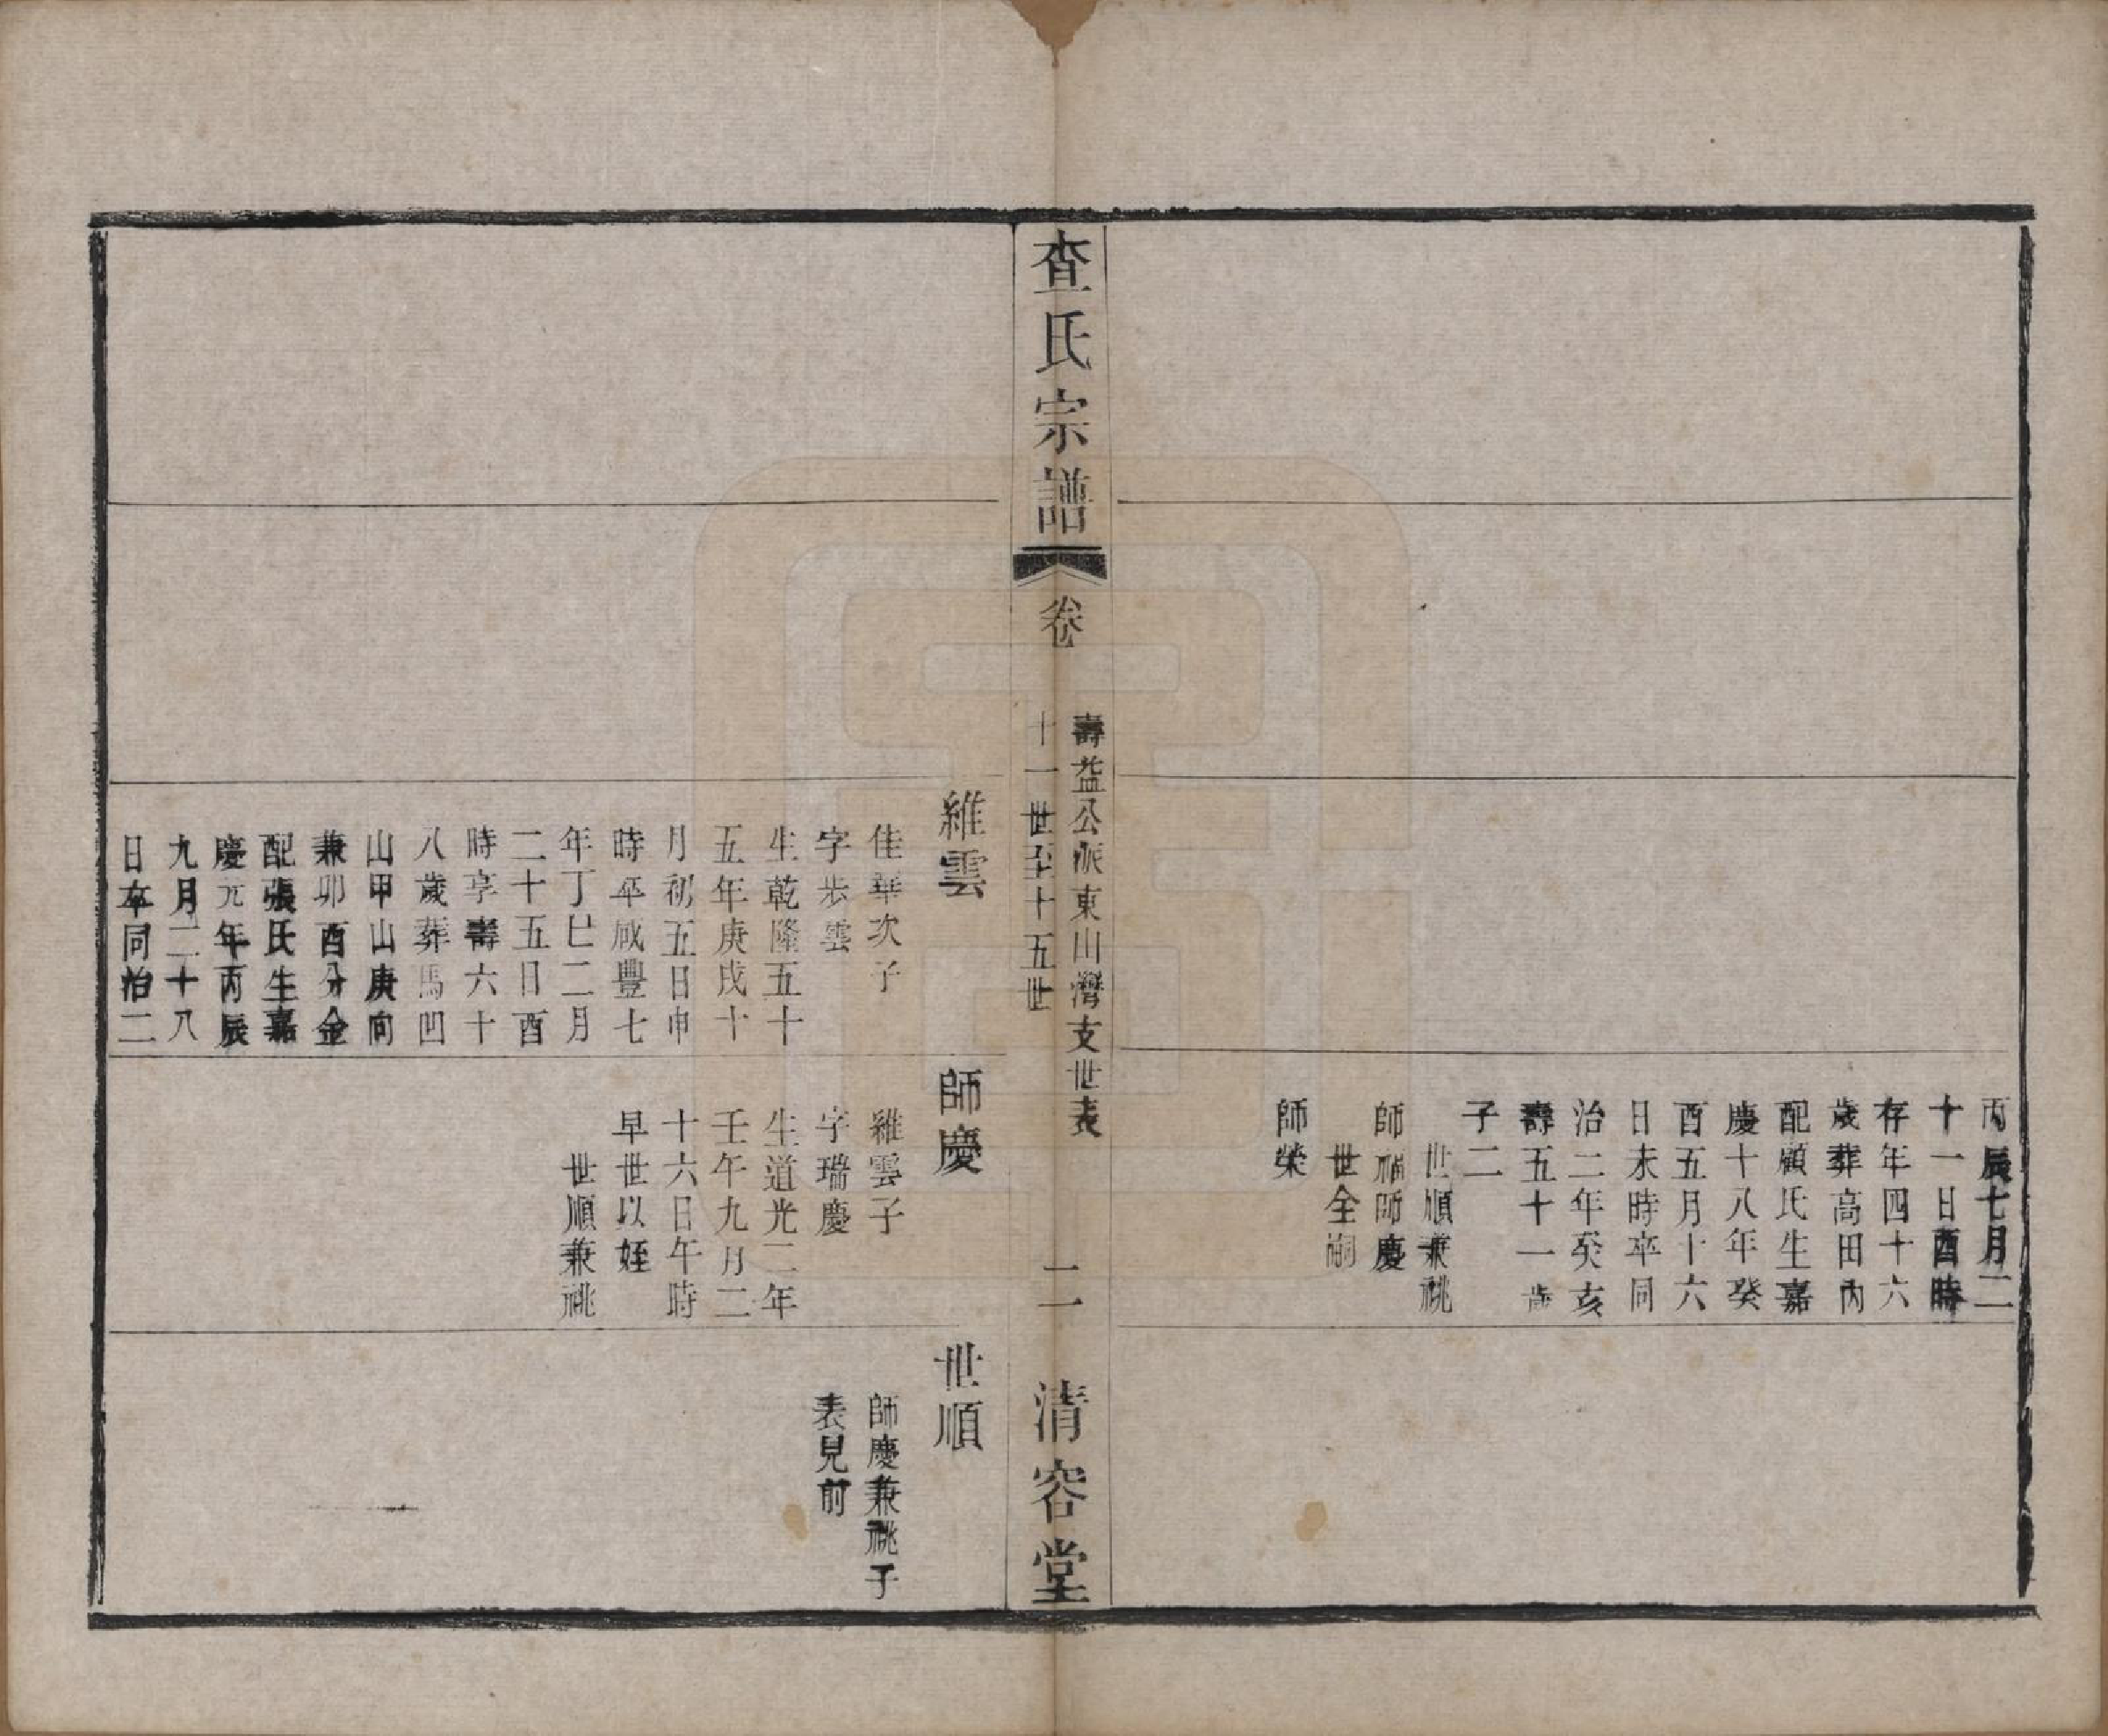 丙辰七月二
十一日酉時
存年四十六
歲葬高田內
配顧氏生嘉
慶十八年癸
酉五月十六
日未時卒同
治二年癸亥
壽五十一歲
子二
世順兼祧
師福師慶
世全嗣
師榮
查氏宗譜
卷
壽益公派東山灣支世表
十一世至十五世
二
清容堂
維雲
佳華次子
字步雲
生乾隆五十
五年庚戌十
月初五日申
時卒咸豐七
年丁巳二月
二十五日酉
時享壽六十
八歲葬馬凹
山甲山庚向
兼卯酉分金
配張氏生嘉
慶元年丙辰
九月二十八
日卒同治二
師慶
維雲子
字瑞慶
生道光二年
壬午九月二
十六日午時
早世以姪
世順兼祧
世順
師慶兼祧子
表見前